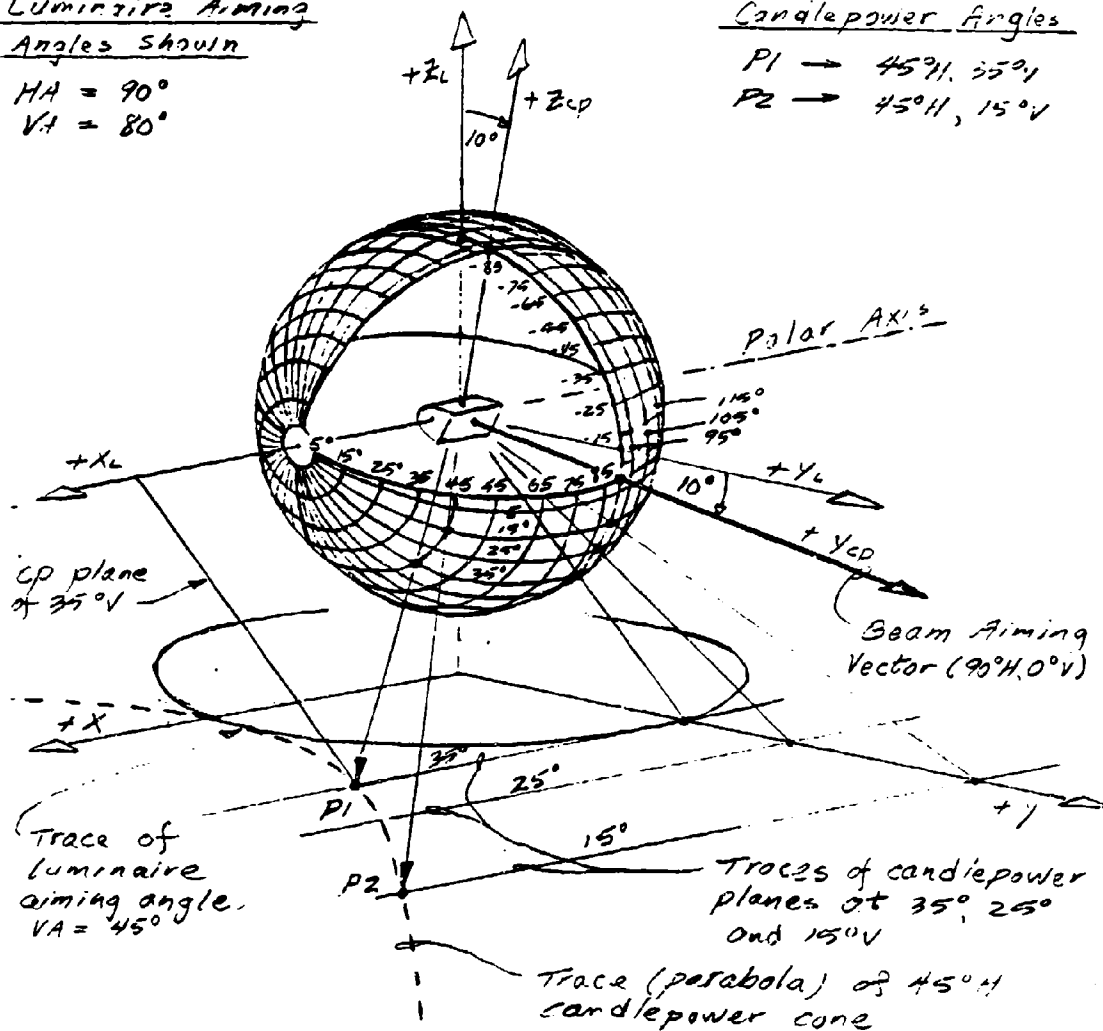 Luminaire Aiming
Angles Shown
HA = 90°
VA = 80°
Candlepower Angles
P1 → 45°H, 35°V
P2 → 45°H, 15°V
+ZL
+Zcp
10°
-85
-75
-65
-55
-45
-35
-25
-15
Polar Axis
115°
105°
95°
+XL
5°
15°
25°
35
45
65
75
85
5
15°
25°
35°
10°
+YL
+Ycp
cp plane
of 35°V
Beam Aiming
Vector (90°H, 0°V)
+X
35°
25°
15°
+Y
P1
P2
Trace of
luminaire
aiming angle.
VA = 45°
Traces of candlepower
planes at 35°, 25°
and 15°V
Trace (parabola) of 45°H
candlepower cone